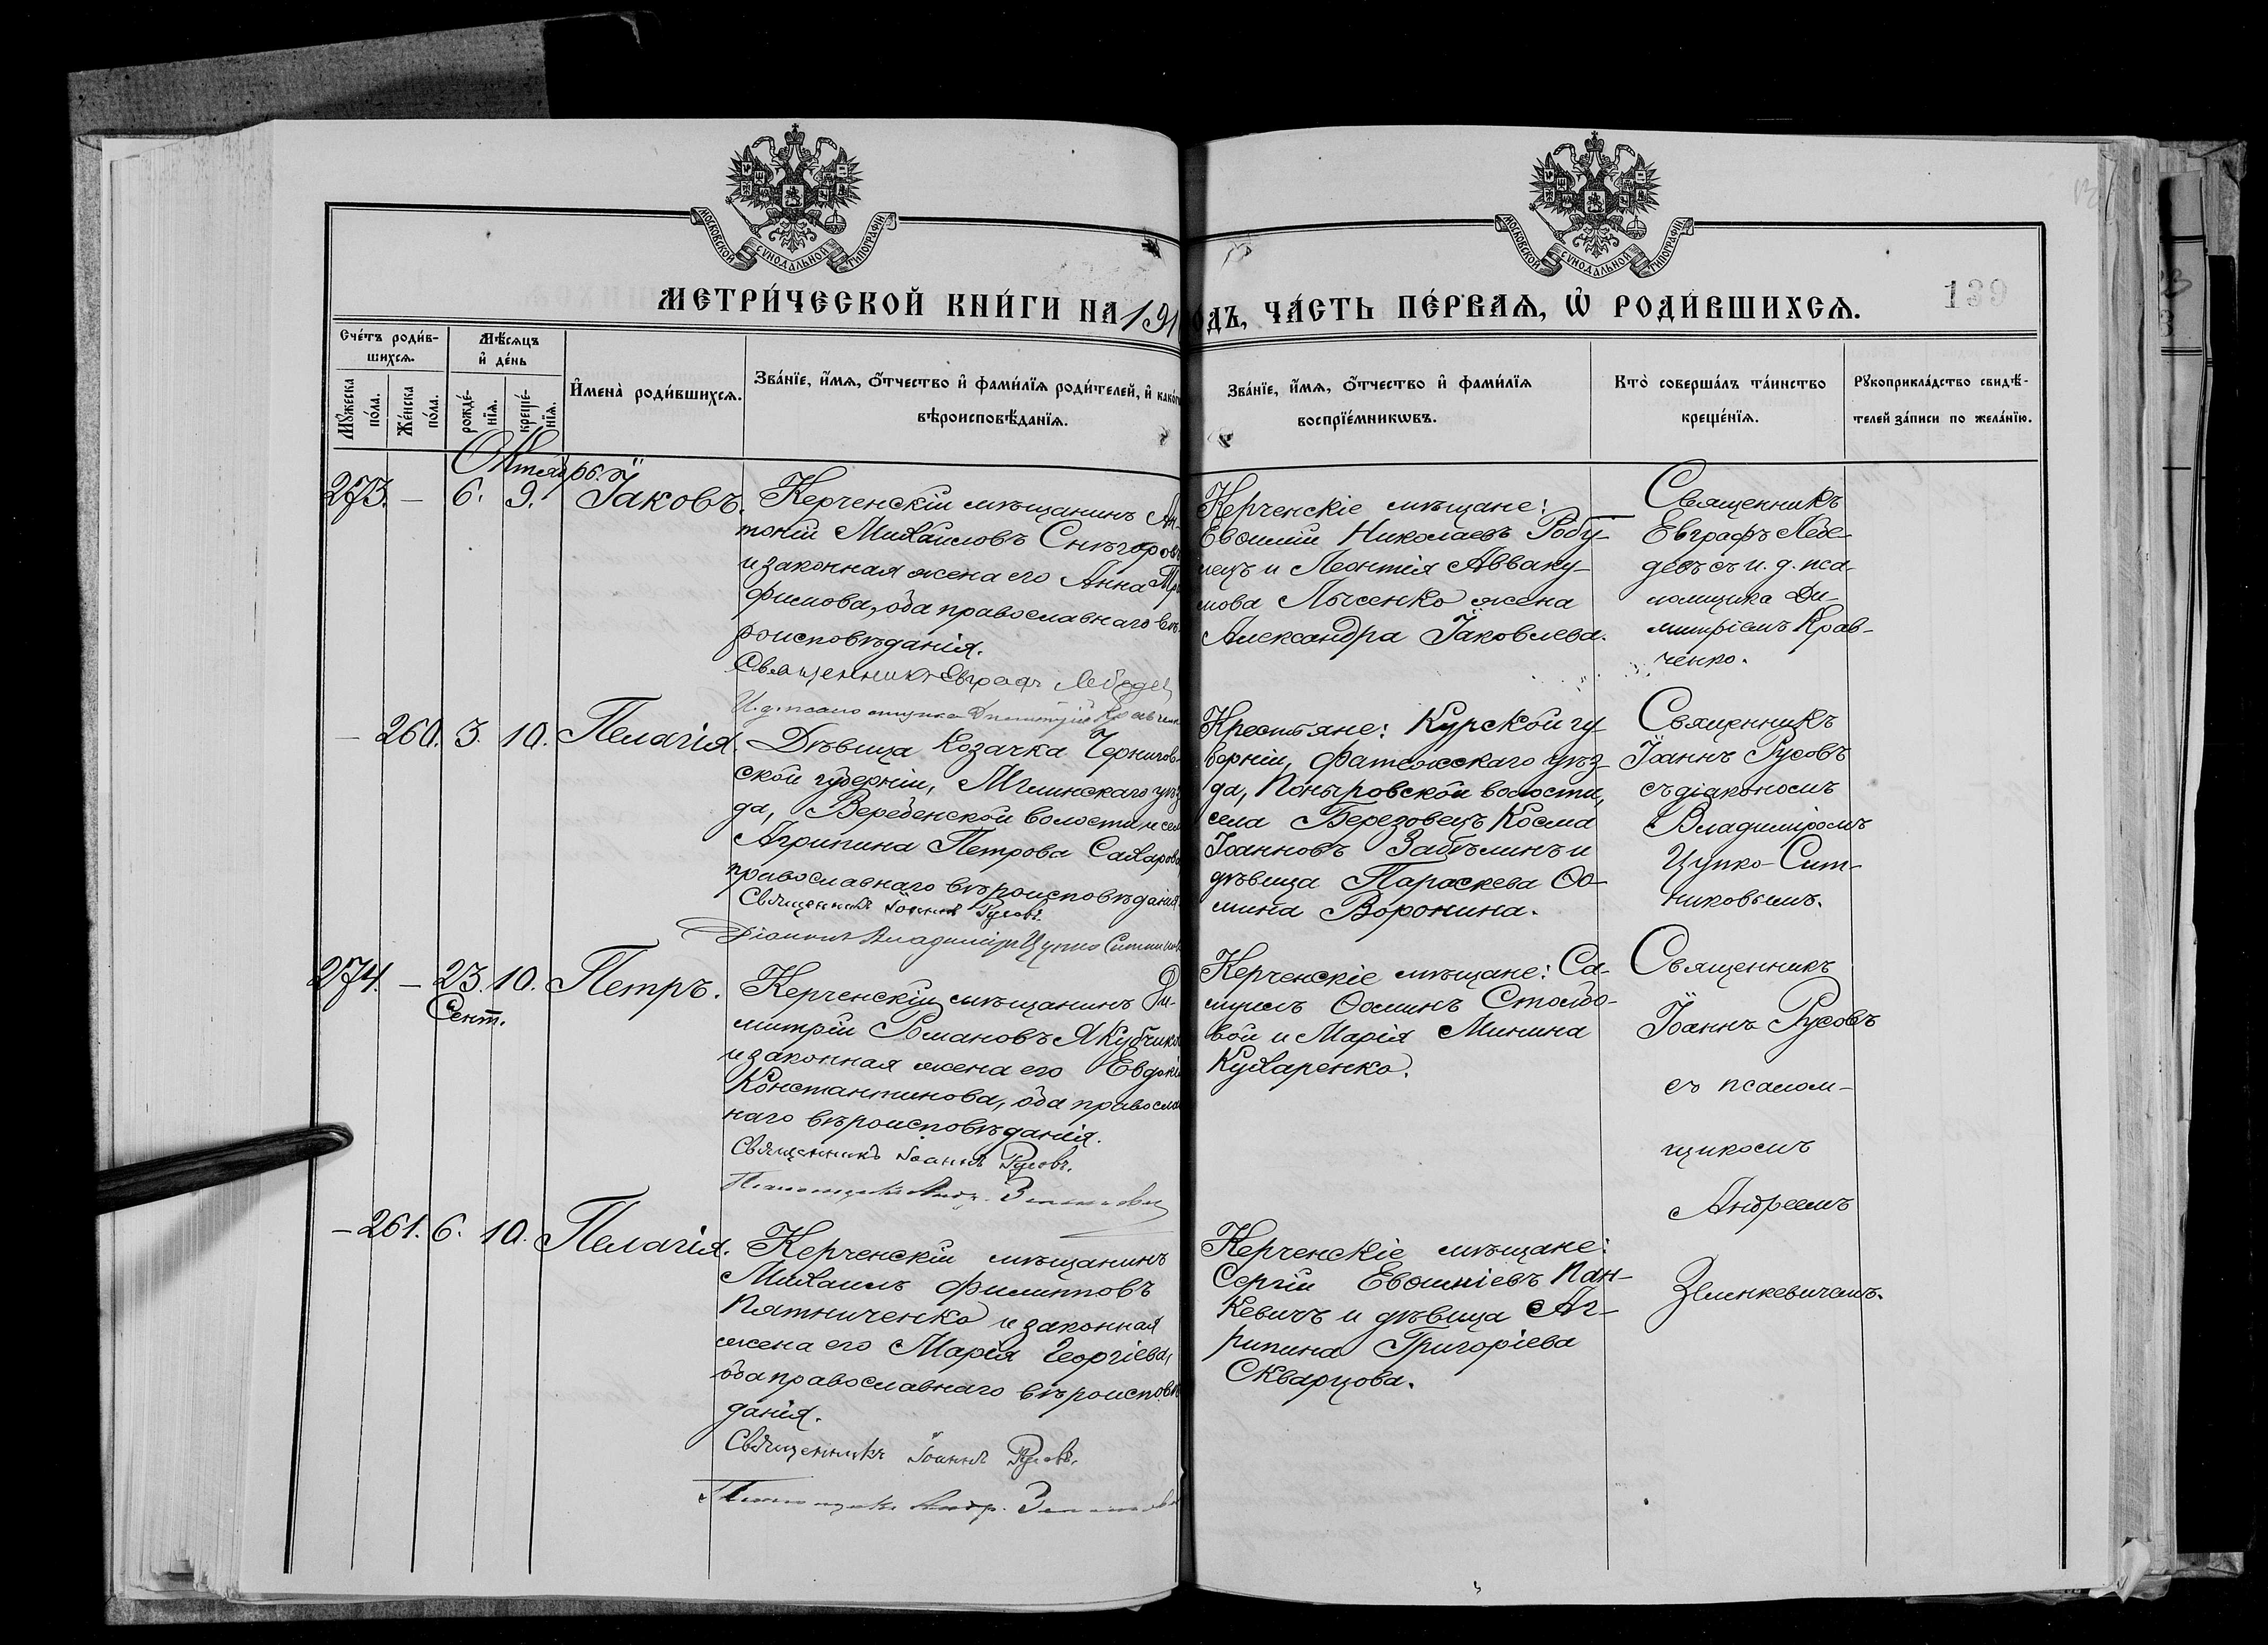 МОСКОВСКОЙ СѴНОДАЛЬНОЙ ТИПОГРАФІИ
МОСКОВСКОЙ СѴНОДАЛЬНОЙ ТИПОГРАФІИ
МЕТРИ́ЧЕСКОЙ КНИ́ГИ НА 191
ОДЪ, ЧА́СТЬ ПЕ́РВАѦ, Ѡ҆ РОДИ́ВШИХСѦ.
139
Сче́тъ роди́в-
шихсѧ.
Мꙋ́жеска
по́ла.
Же́нска
по́ла.
Мѣ́сѧцъ
и҆ де́нь
рожде́-
нїѧ.
креще́-
нїѧ.
И҆мена̀ роди́вшихсѧ.
Зва́нїе, и҆́мѧ, ѻ҆́тчество и҆ фами́лїѧ роди́телей, и҆ како́г
вѣроисповѣ́данїѧ.
Зва́нїе, и҆́мѧ, ѻ҆́тчество и҆ фами́лїѧ
воспрїе́мникѡвъ.
Кто̀ соверша́лъ та́инство
креще́нїѧ.
Рꙋкоприкла́дство свидѣ́-
телей за́писи по жела́нїю.
Октябрь.
273. — 6. 9. Іаковъ.
Керченскій мѣщанинъ Ан-
тоній Михаиловъ Снѣгоровъ
и законная жена его Анна Тро
фимова, оба православнаго вѣ-
роисповѣданія.
Священникъ Евграфъ Лебедев
И. д. псаломщика Димитрій Кравченк
Керченскіе мѣщане:
Евѳимій Николаевъ Робу-
лецъ и Леонтія Аввaку-
мова Лысенко жена
Александра Іаковлева.
Священникъ
Евграфъ Лебе-
девъ съ и. д. пса-
ломщика Ди-
митріемъ Крав-
ченко.
— 260. 3. 10. Пелагія.
Дѣвица Козачка Чернигов-
ской губерніи, Мглинскаго уѣз
да, Веребенской волости и сел
Агрипина Петрова Сахарова
православнаго вѣроисповѣданія.
Священникъ Іоаннъ Русовъ.
Діаконъ Владиміръ Цупко Ситников
Крестьяне: Курской гу-
берніи, Фатежскаго уѣз-
да, Поныровской волости,
села Березовецъ Косма
Іоанновъ Забѣлинъ и
дѣвица Параскева Ѳо-
мина Воронина.
Священникъ
Іоаннъ Русовъ
съ діакономъ
Владиміромъ
Цупко-Сит-
никовымъ.
274. — 23. 10. Петръ.
Сент.
Керченскій мѣщанинъ Ди-
митрій Романовъ Якубчик
и законная жена его Евдокія
Константинова, оба правосла
наго вѣроисповѣданія.
Священникъ Іоаннъ Русовъ.
Псаломщикъ Андр. Зелинкевич
Керченскіе мѣщане: Са-
муилъ Ѳоминъ Столбо-
вой и Марія Минина
Кухаренко.
Священникъ
Іоаннъ Русовъ
съ псалом-
щикомъ
Андреемъ
Зелинкевичемъ.
— 261. 6. 10. Пелагія.
Керченскій мѣщанинъ
Михаилъ Филипповъ
Пятниченко и законная
жена его Марія Георгіева,
оба православнаго вѣроисповѣ
данія.
Священникъ Іоаннъ Русовъ.
Псаломщикъ Андр. Зелинкевич
Керченскіе мѣщане:
Сергій Евѳиміевъ Пан-
кевичъ и дѣвица Аг-
рипина Григоріева
Скварцова.